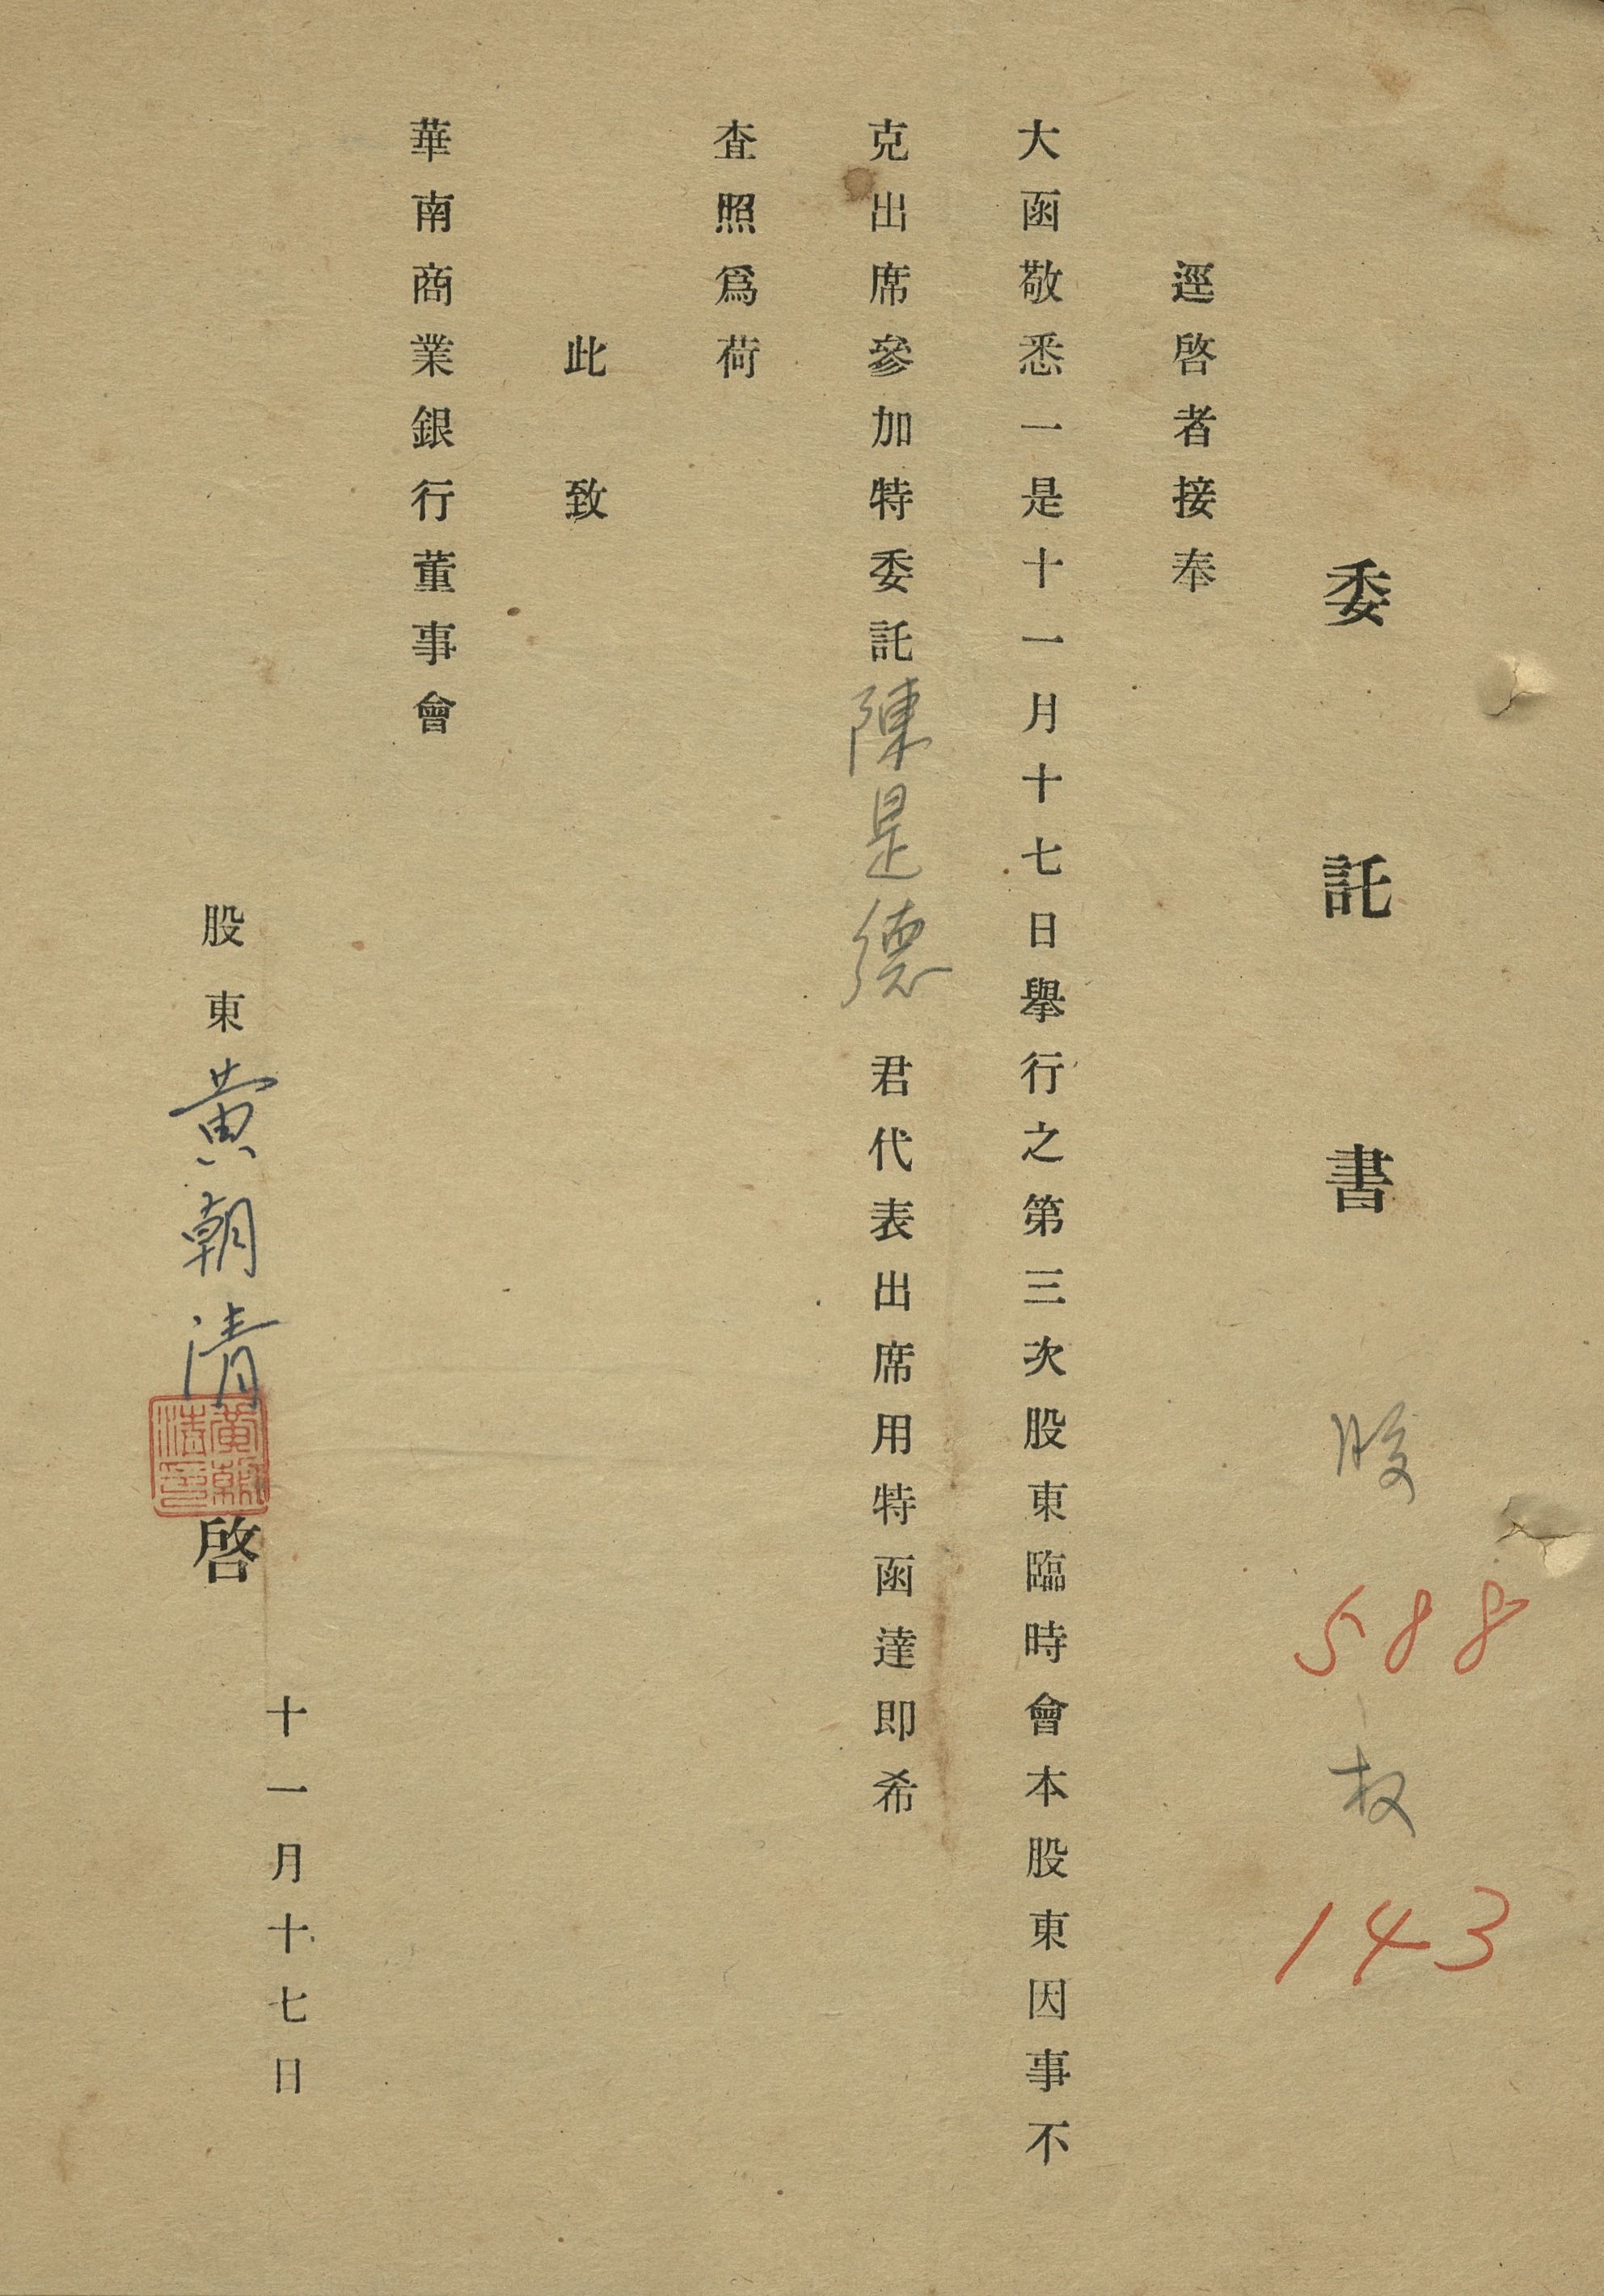 委託書
股 588
权 143
逕啓者接奉
大函敬悉一是十一月十七日舉行之第三次股東臨時會本股東因事不
克出席參加特委託陳是德君代表出席用特函達即希
査照爲荷
此致
華南商業銀行董事會
十一月十七日
股東黄朝清啓
黄朝清印